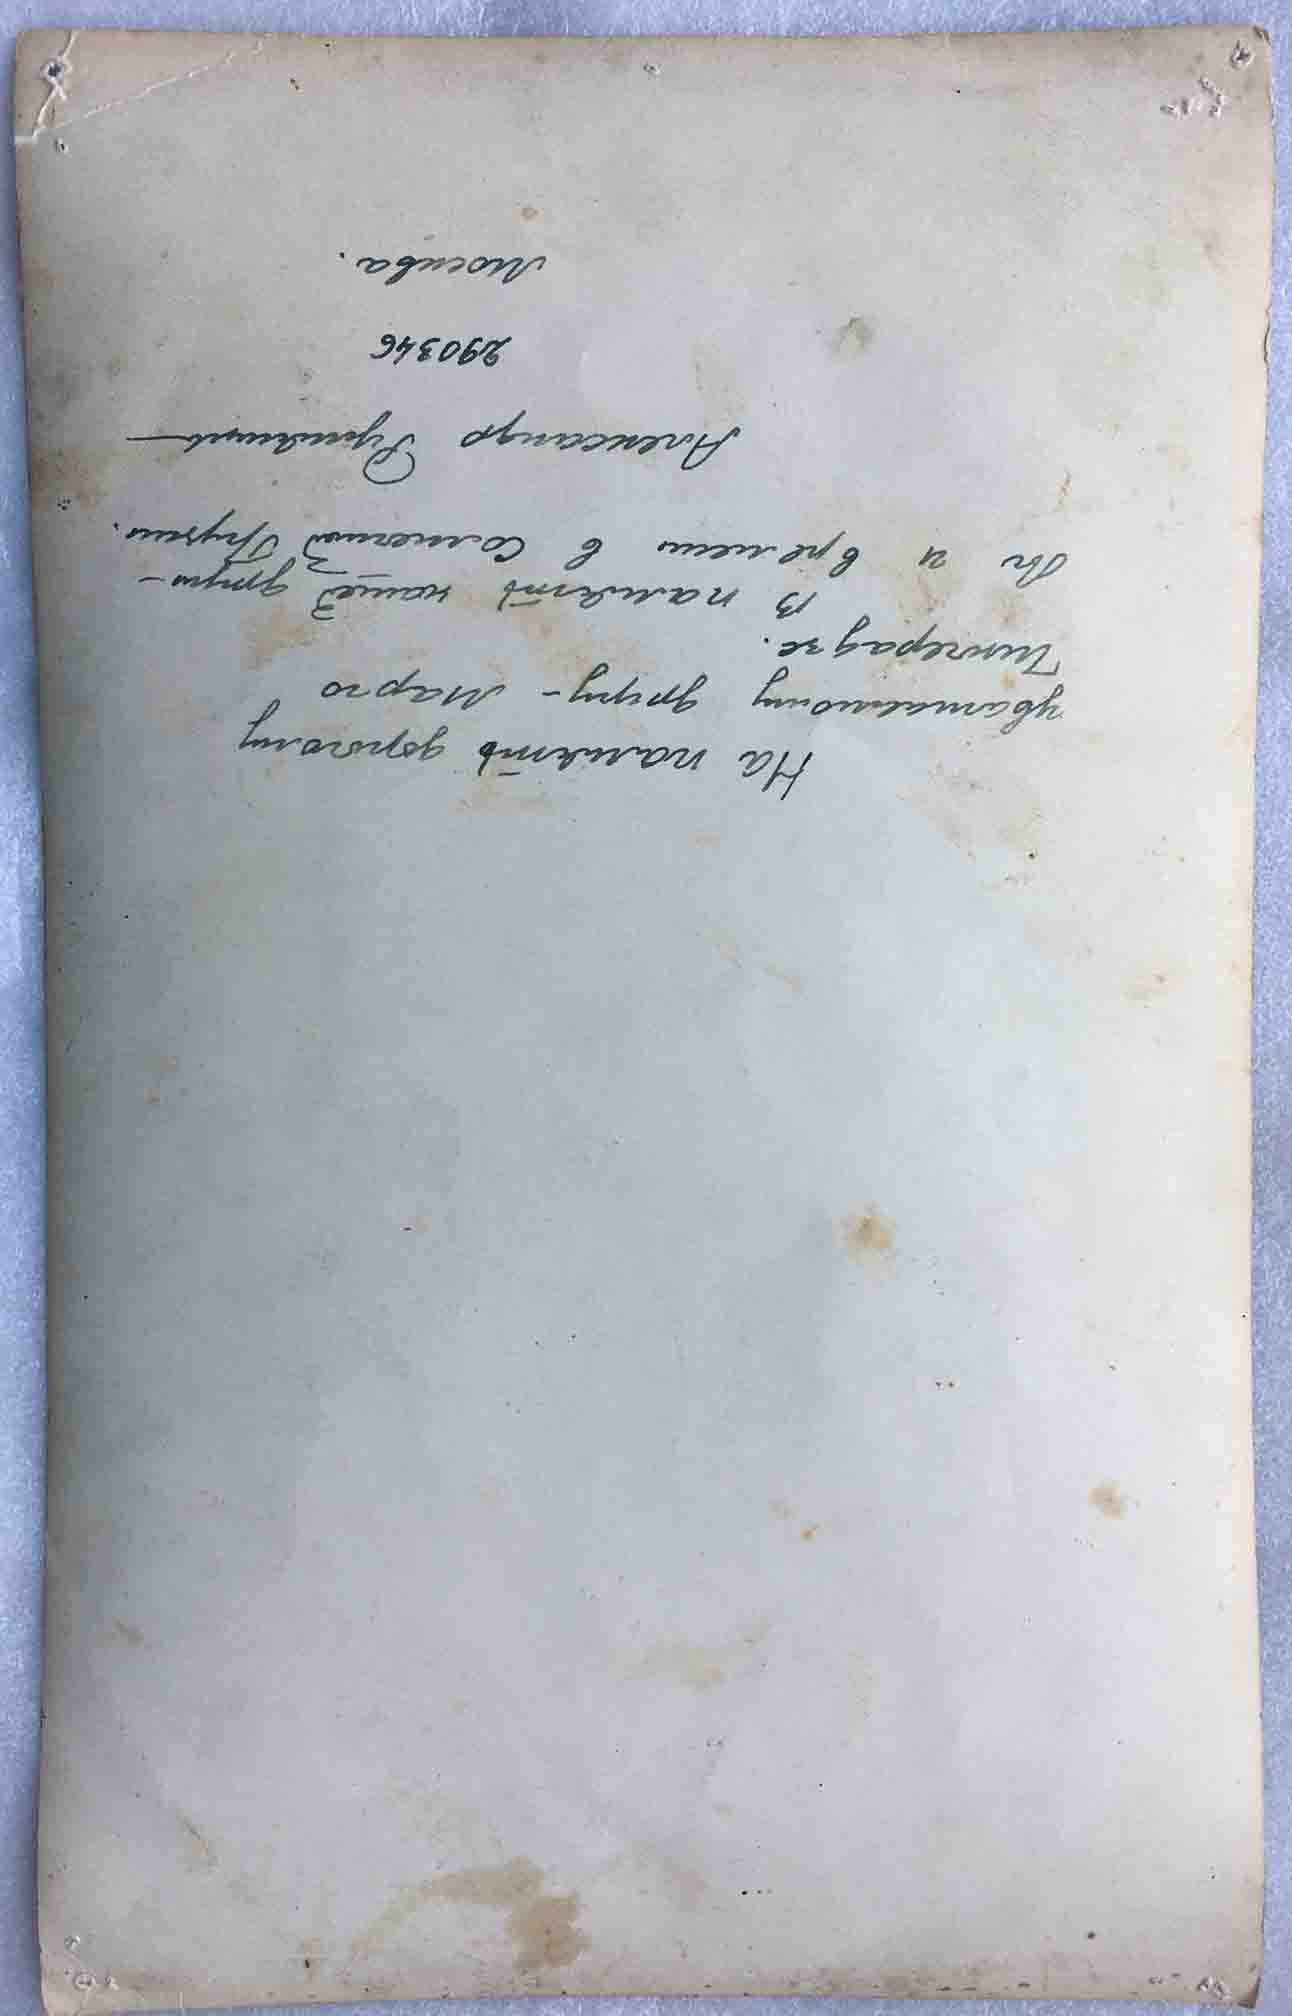 На память дорогому
уважаемому другу - Марго
Чихерадзе.
В память нашей друж-
бы и времени в Солнечной Грузии.
Александр
290346
Москва.